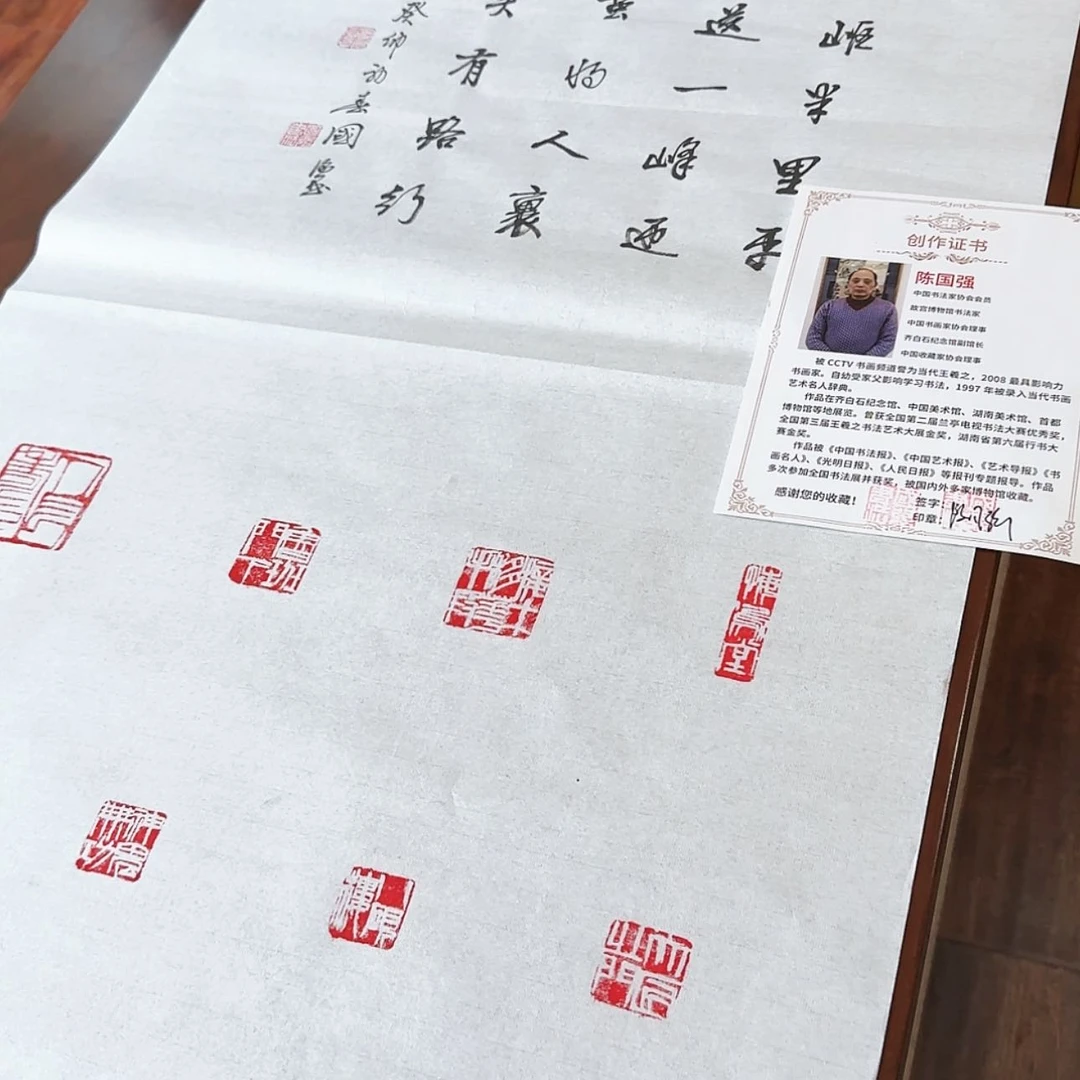 岠
米
里
平
送
一
峰
迺
物
人
襄
有
路
行
癸卯初春國強
创作证书
陈国强
中国书法家协会会员
故宫博物馆书法家
中国书画家协会理事
齐白石纪念馆副馆长
中国收藏家协会理事
被 CCTV 书画频道誉为当代王羲之,2008 最具影响力
书画家。自幼受家父影响学习书法,1997 年被录入当代书画
艺术名人辞典。
作品在齐白石纪念馆、中国美术馆、湖南美术馆、首都
博物馆等地展览。曾获全国第二届兰亭电视书法大赛优秀奖,
全国第三届王羲之书法艺术大展金奖,湖南省第六届行书大
赛金奖。
作品被《中国书法报》、《中国艺术报》、《艺术导报》《书
画名人》、《光明日报》、《人民日报》等报刊专题报导。作品
多次参加全国书法展并获奖。被国内外多家博物馆收藏。
感谢您的收藏!
签字:
印章:
魯班門下